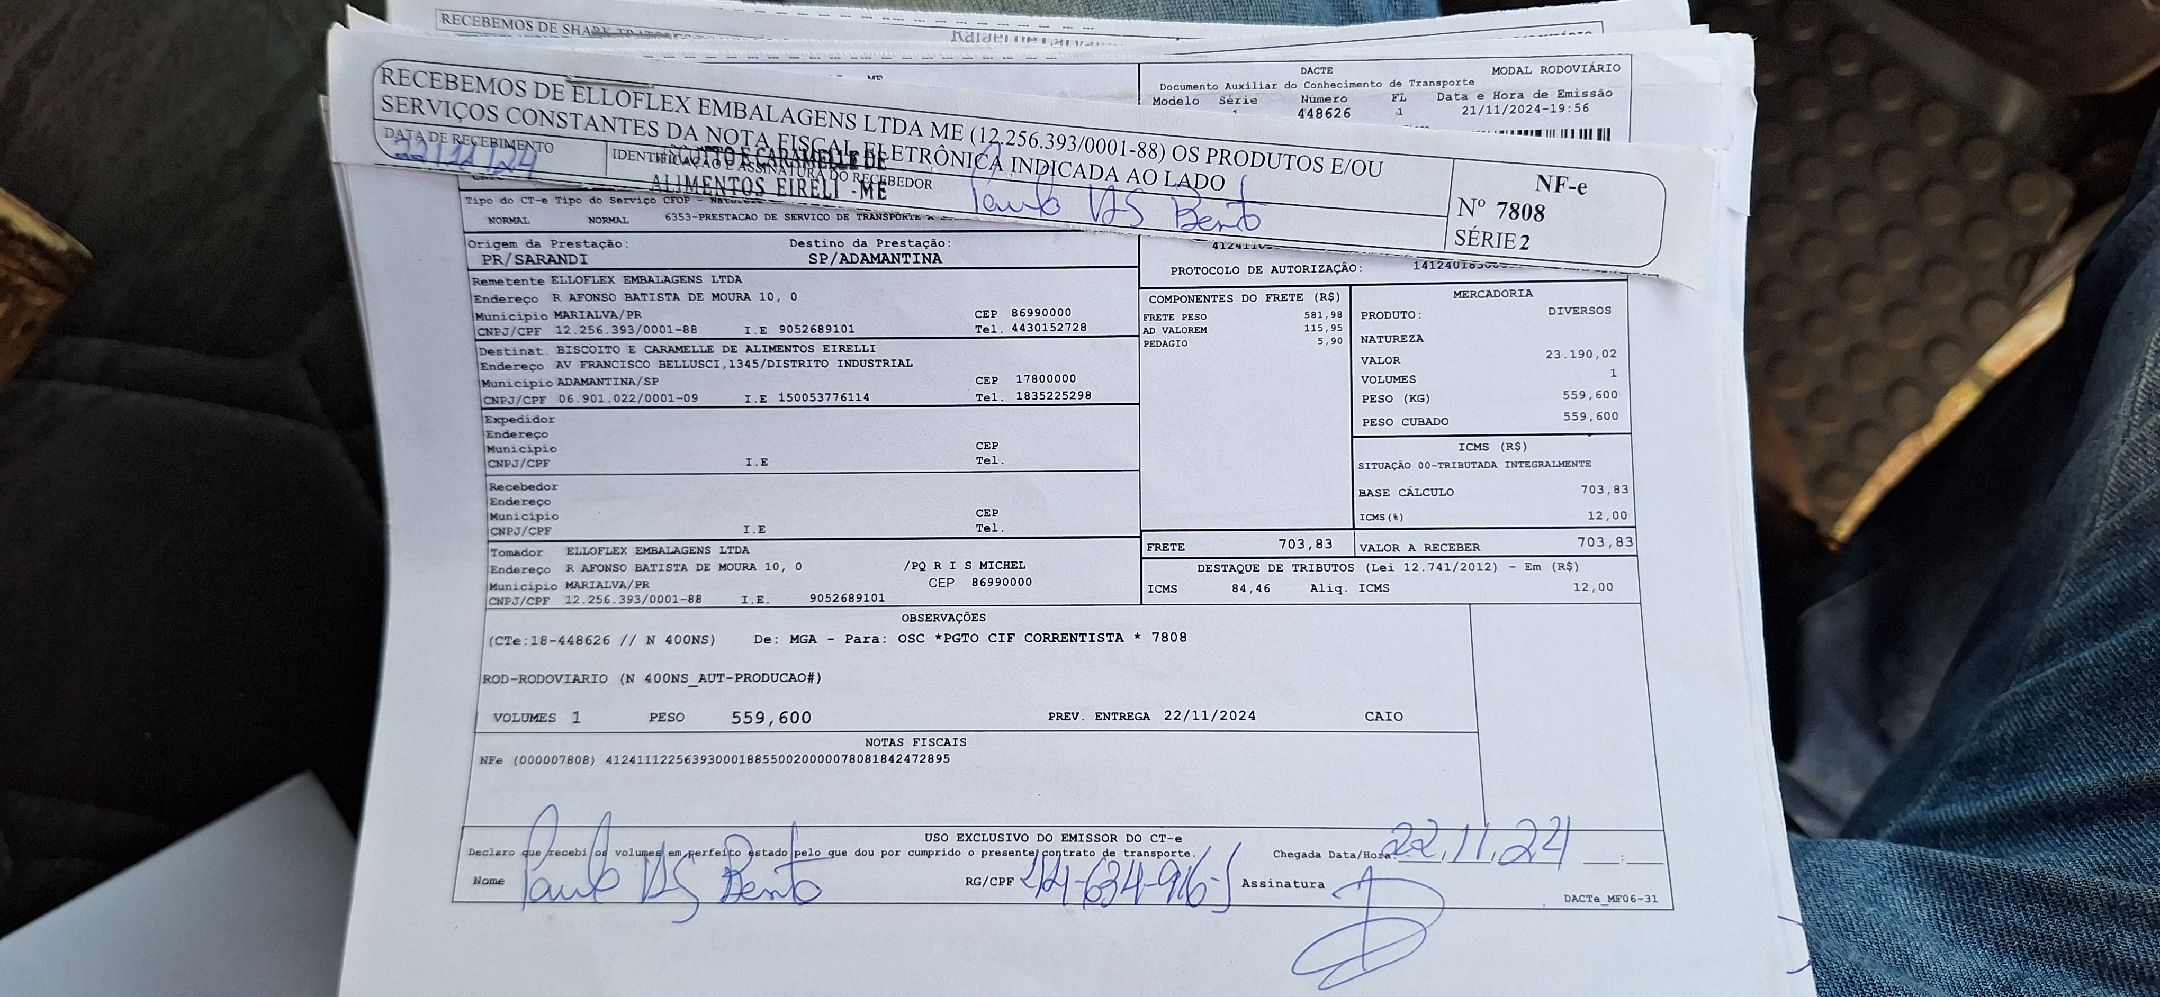 RECEBEMOS DE SHARK
DACTE MODAL RODOVIÁRIO
Documento Auxiliar do Conhecimento de Transporte
Modelo Série Número FL Data e Hora de Emissão
448626 1 21/11/2024-19:56
RECEBEMOS DE ELLOFLEX EMBALAGENS LTDA ME (12.256.393/0001-88) OS PRODUTOS E/OU
SERVIÇOS CONSTANTES DA NOTA FISCAL ELETRÔNICA INDICADA AO LADO
DATA DE RECEBIMENTO
22/11/24
IDENTIFICAÇÃO E ASSINATURA DO RECEBEDOR
BISCOITO E CARAMELLE DE
ALIMENTOS EIRELI -ME
Paulo Bento
NF-e
Nº 7808
SÉRIE 2
Tipo do CT-e Tipo do Serviço CFOP -
NORMAL NORMAL 6353-PRESTACAO DE SERVICO DE TRANSPORTE A
Origem da Prestação: Destino da Prestação:
PR/SARANDI SP/ADAMANTINA
PROTOCOLO DE AUTORIZAÇÃO:
Remetente ELLOFLEX EMBALAGENS LTDA
Endereço R AFONSO BATISTA DE MOURA 10, 0
Município MARIALVA/PR CEP 86990000
CNPJ/CPF 12.256.393/0001-88 I.E 9052689101 Tel. 4430152728
Destinat. BISCOITO E CARAMELLE DE ALIMENTOS EIRELLI
Endereço AV FRANCISCO BELLUSCI,1345/DISTRITO INDUSTRIAL
Município ADAMANTINA/SP CEP 17800000
CNPJ/CPF 06.901.022/0001-09 I.E 150053776114 Tel. 1835225298
Expedidor
Endereço
Município CEP
CNPJ/CPF I.E Tel.
Recebedor
Endereço
Município CEP
CNPJ/CPF I.E Tel.
Tomador ELLOFLEX EMBALAGENS LTDA
Endereço R AFONSO BATISTA DE MOURA 10, 0 /PQ R I S MICHEL
Município MARIALVA/PR CEP 86990000
CNPJ/CPF 12.256.393/0001-88 I.E. 9052689101
COMPONENTES DO FRETE (R$)
FRETE PESO 581,98
AD VALOREM 115,95
PEDAGIO 5,90
MERCADORIA
PRODUTO: DIVERSOS
NATUREZA
VALOR 23.190,02
VOLUMES 1
PESO (KG) 559,600
PESO CUBADO 559,600
ICMS (R$)
SITUAÇÃO 00-TRIBUTADA INTEGRALMENTE
BASE CÁLCULO 703,83
ICMS(%) 12,00
FRETE 703,83 VALOR A RECEBER 703,83
DESTAQUE DE TRIBUTOS (Lei 12.741/2012) - Em (R$)
ICMS 84,46 Aliq. ICMS 12,00
OBSERVAÇÕES
(CTe:18-448626 // N 400NS) De: MGA - Para: OSC *PGTO CIF CORRENTISTA * 7808
ROD-RODOVIARIO (N 400NS_AUT-PRODUCAO#)
VOLUMES 1 PESO 559,600 PREV. ENTREGA 22/11/2024 CAIO
NOTAS FISCAIS
NFe (000007808) 41241112256393000188550020000078081842472895
USO EXCLUSIVO DO EMISSOR DO CT-e
Declaro que recebi os volumes em perfeito estado pelo que dou por cumprido o presente contrato de transporte. Chegada Data/Hora: 22.11.24
Nome Paulo Bento RG/CPF Assinatura
DACTe_MF06-31